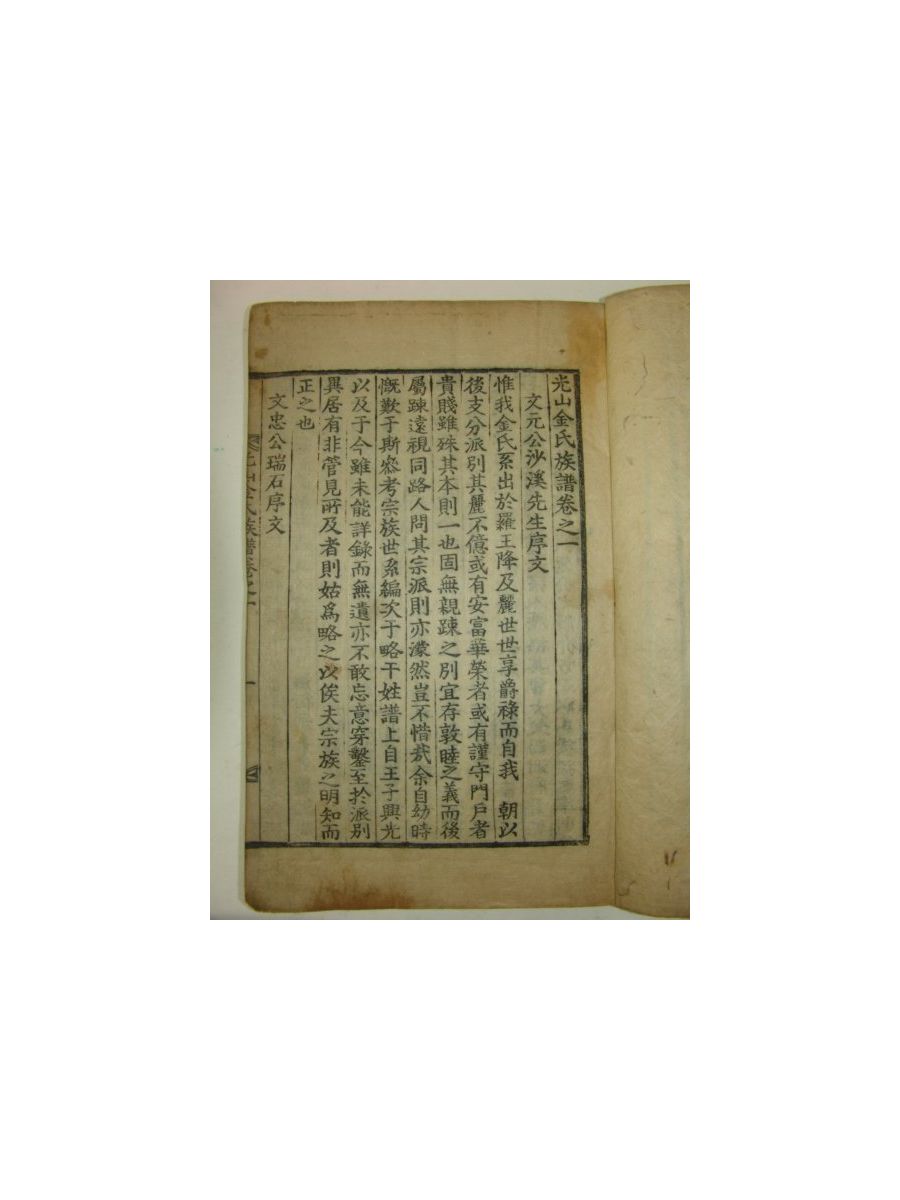 光山金氏族譜卷之一
文元公沙溪先生序文
惟我金氏系出於羅王降及麗世世享爵祿而自我 朝以
後支分派別其麗不億或有安富華榮者或有謹守門戶者
貴賤雖殊其本則一也固無親踈之別宜存敦睦之義而後
屬踈遠視同路人問其宗派則亦濛然豈不惜㢤余自幼時
慨歎于斯叅考宗族世系編次于略干姓譜上自王子興光
以及于今雖未能詳錄而無遺亦不敢忘意穿鑿至於派別
異居有非管見所及者則姑爲略之以俟夫宗族之明知而
正之也
文忠公瑞石序文
光山金氏族譜卷之一
一